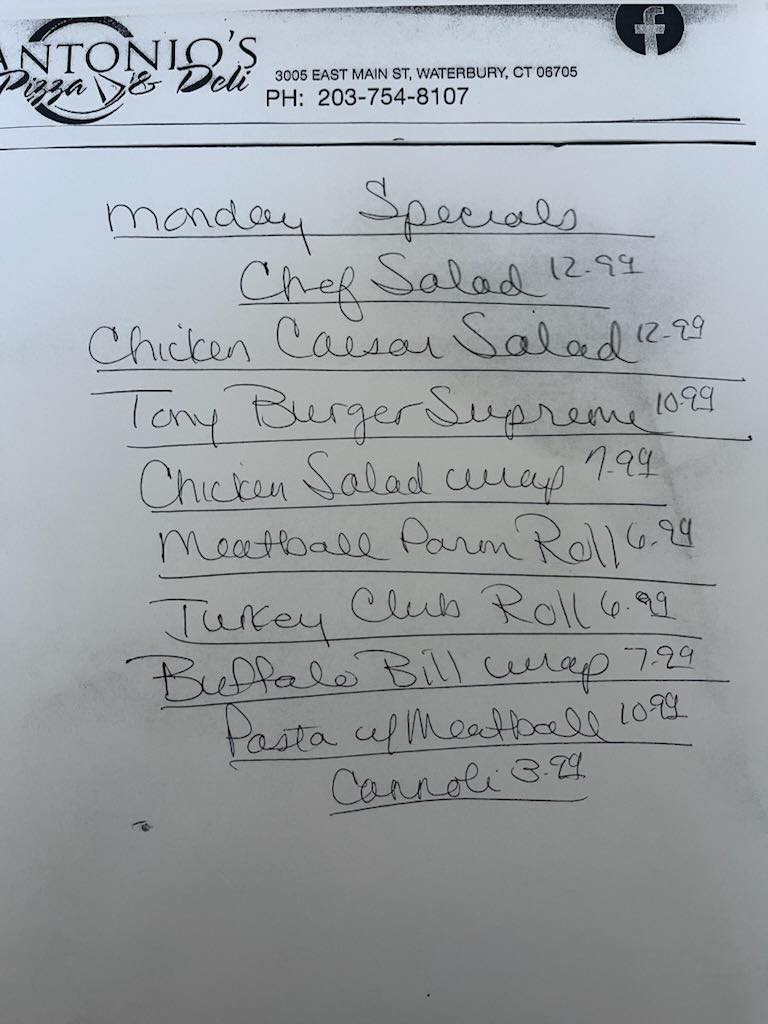 ANTONIO'S
Pizza & Deli
3005 EAST MAIN ST, WATERBURY, CT 06705
PH: 203-754-8107
f
Monday Specials
Chef Salad 12.99
Chicken Caesar Salad 12.99
Tony Burger Supreme 10.99
Chicken Salad wrap 7.99
Meatball Parm Roll 6.99
Turkey Club Roll 6.99
Buffalo Bill wrap 7.99
Pasta w/ Meatball 10.99
Cannoli 3.99